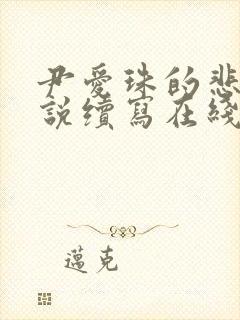 尹愛珠的悲
說續寫在綫
邁克